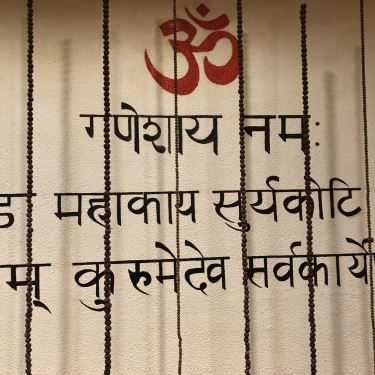 ॐ
गणेशाय नमः
ड महाकाय सुर्यकोटि
म् कुरुमेदेव सर्वकार्ये